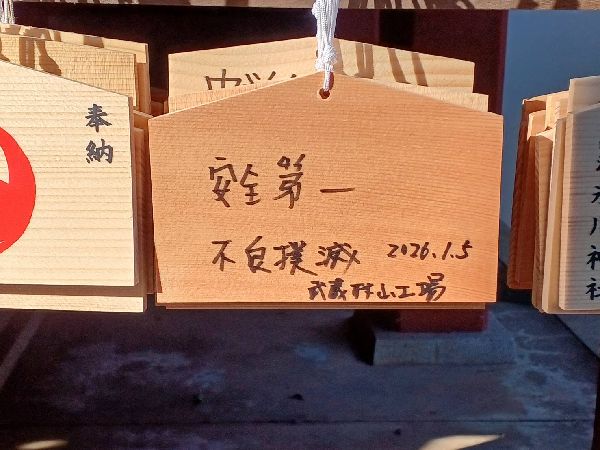 奉納
安全第一
不良撲滅 2026.1.5
武蔵村山工場
川神社